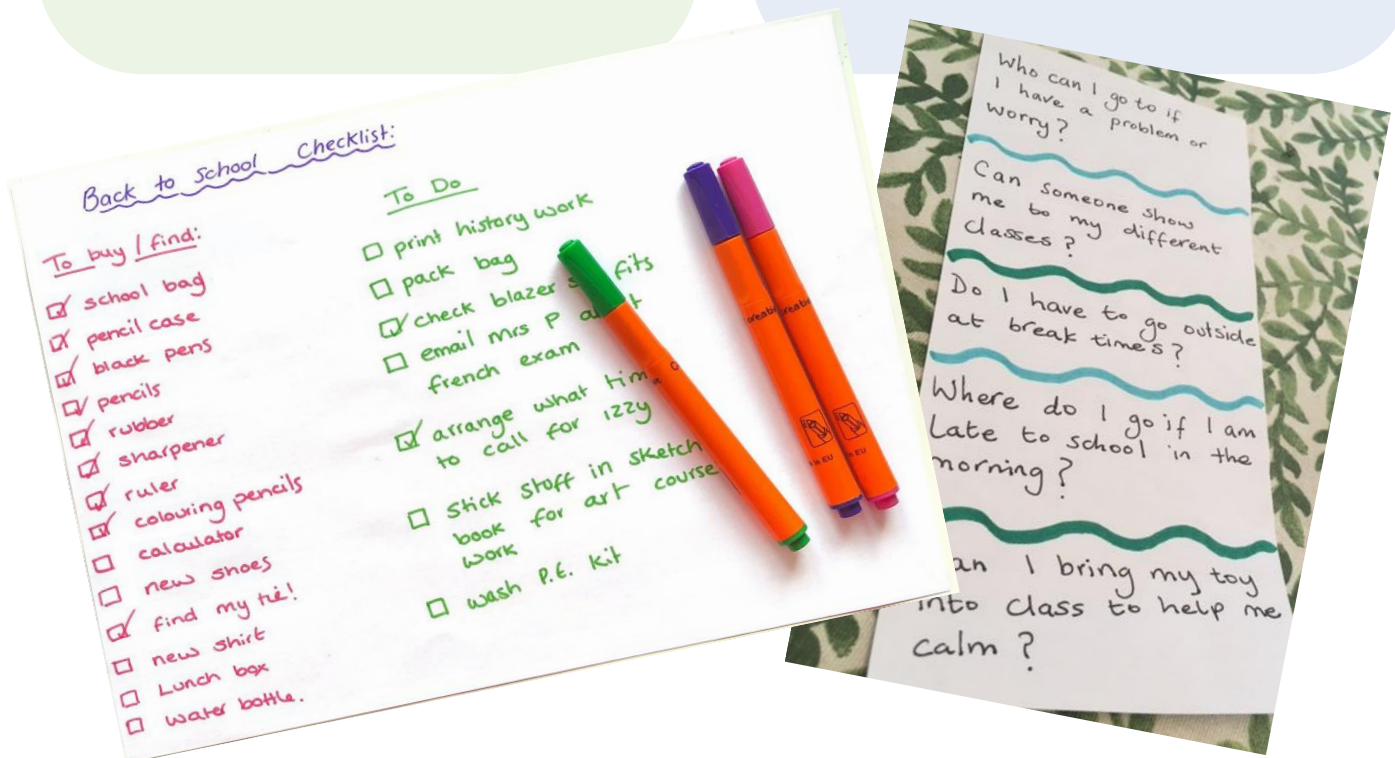 Back to school Checklist:
To buy / find:
school bag
pencil case
black pens
pencils
rubber
sharpener
ruler
colouring pencils
calculator
new shoes
find my tie!
new shirt
Lunch box
water bottle.
To Do
print history work
pack bag
check blazer fits
email mrs P
french exam
arrange what
to call for izzy
stick stuff in sketch
book for art course
work
wash P.E. kit
in EU
in EU
Who can I go to if
I have a problem or
worry?
Can someone show
me to my different
classes?
Do I have to go outside
at break times?
Where do I go if I am
Late to school in the
morning?
an I bring my toy
into class to help me
calm?